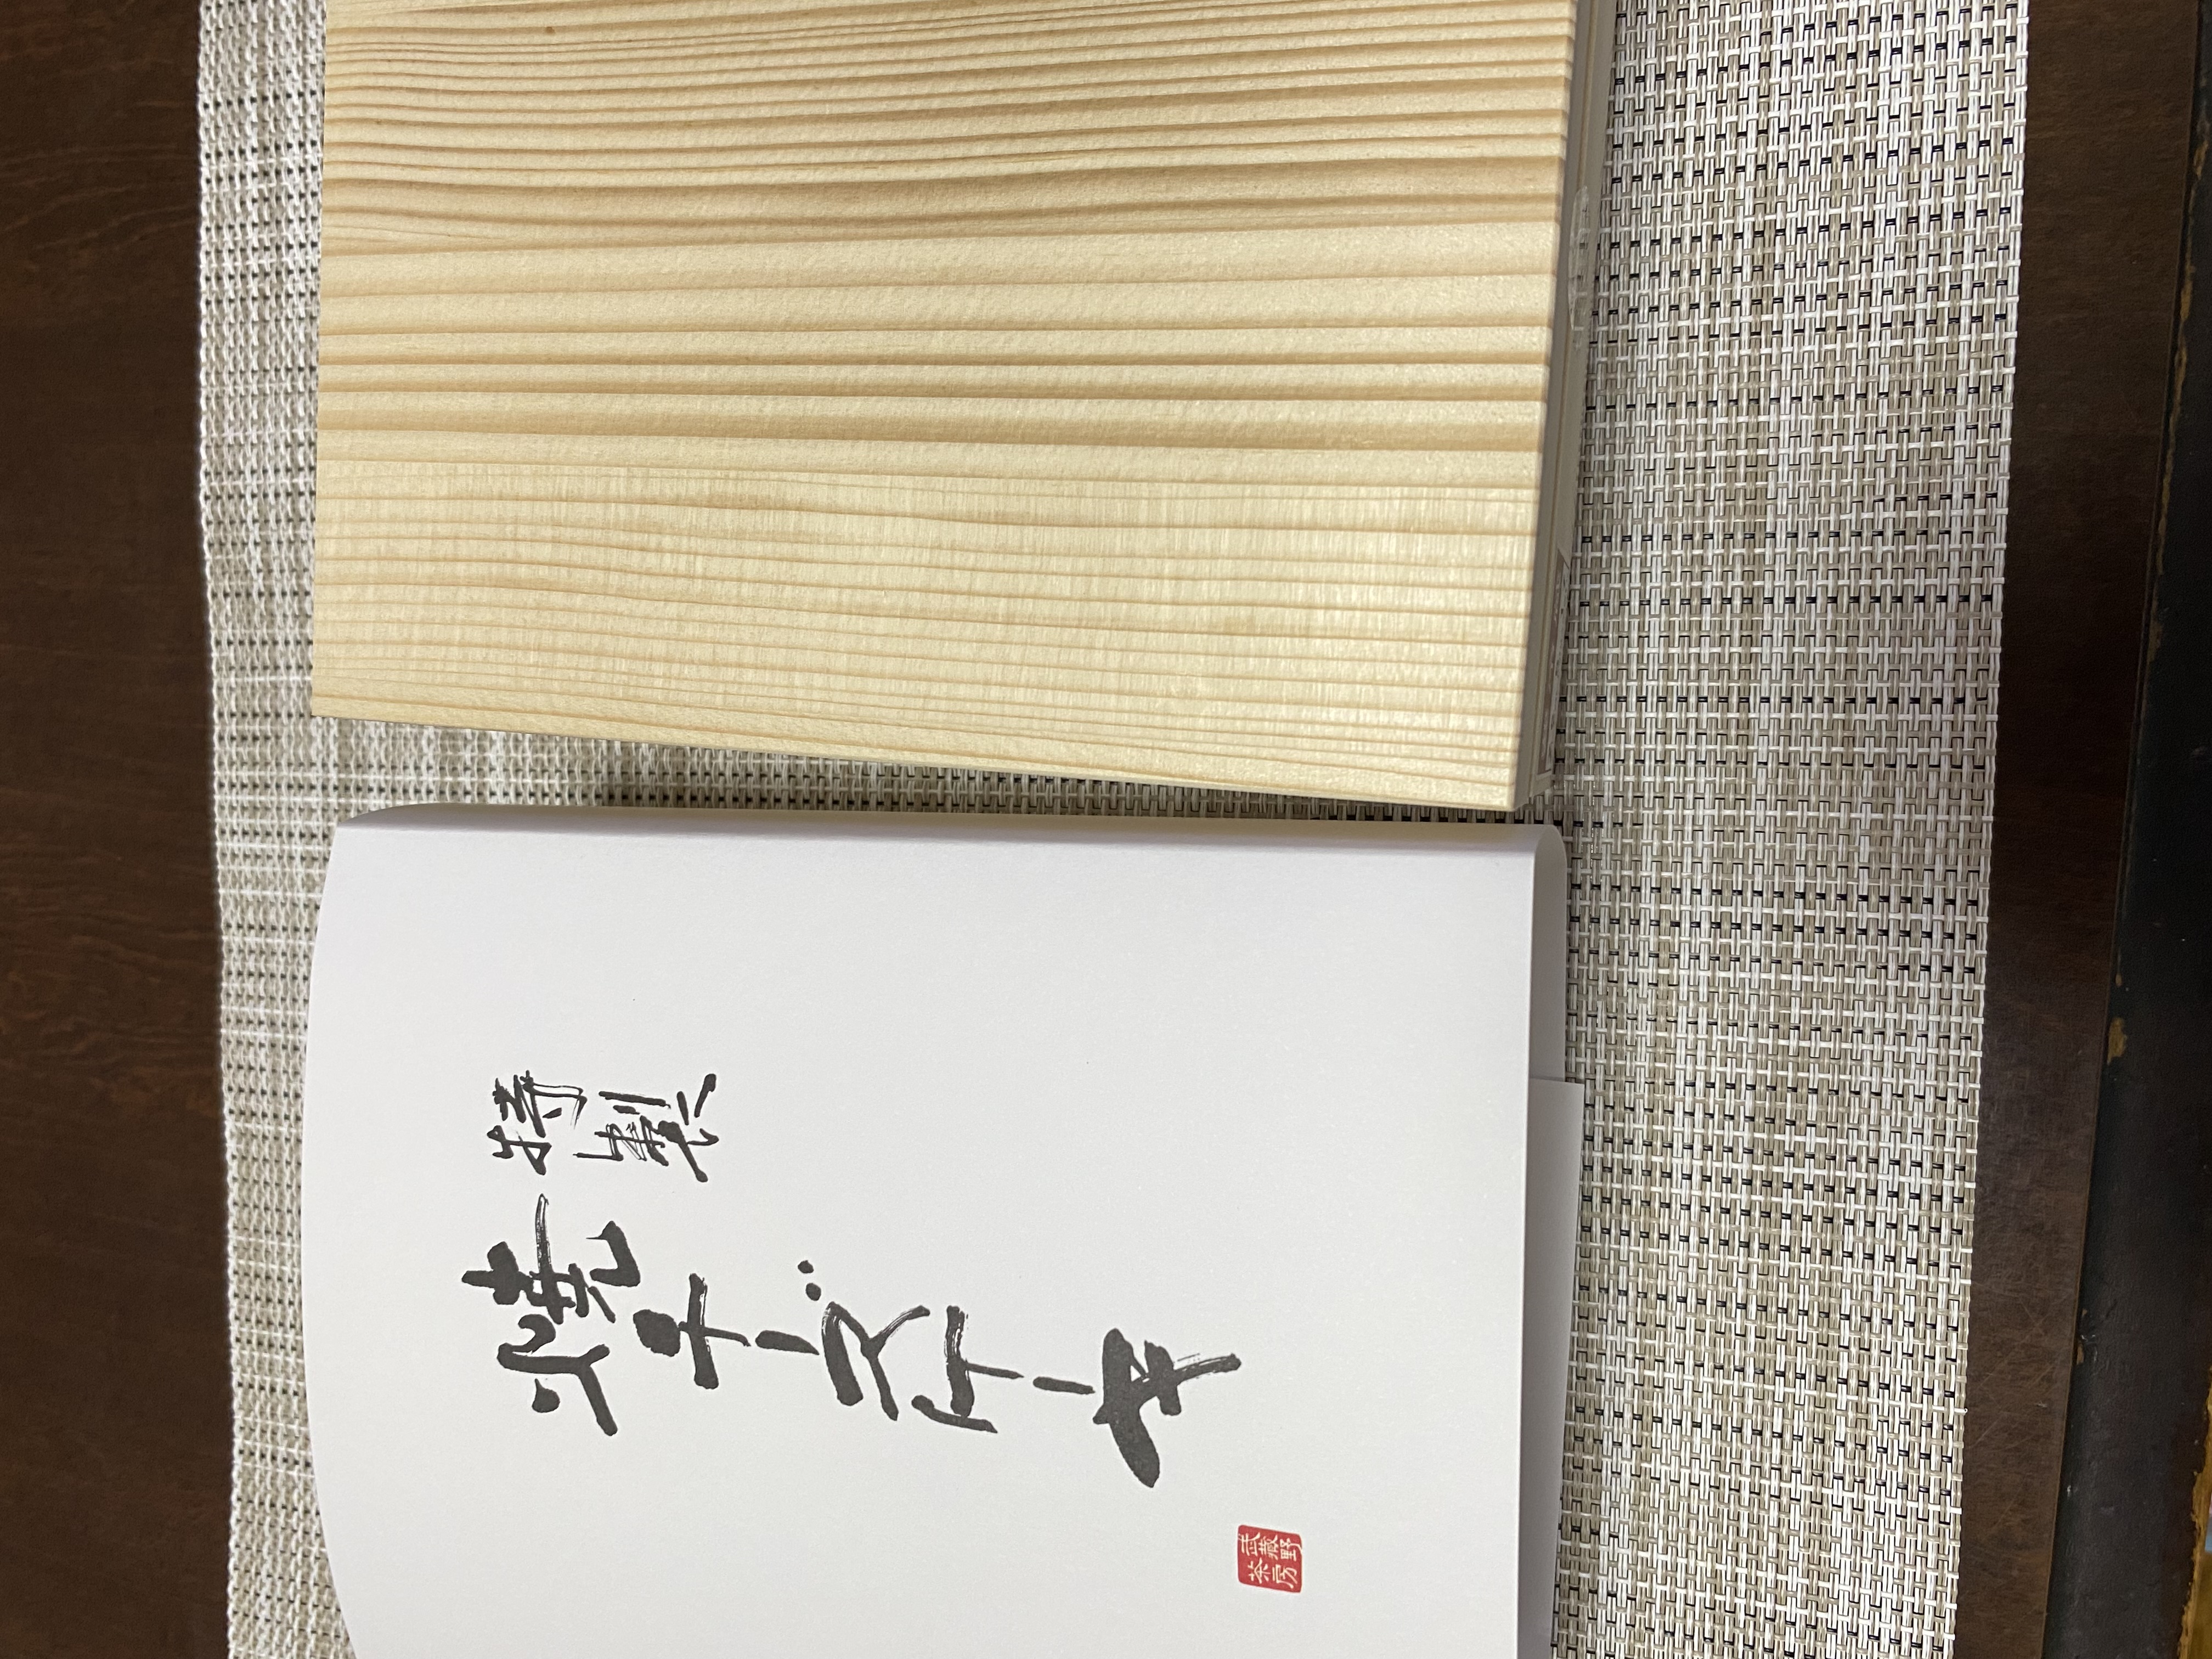 特製
焼チーズケーキ
武蔵野
茶房